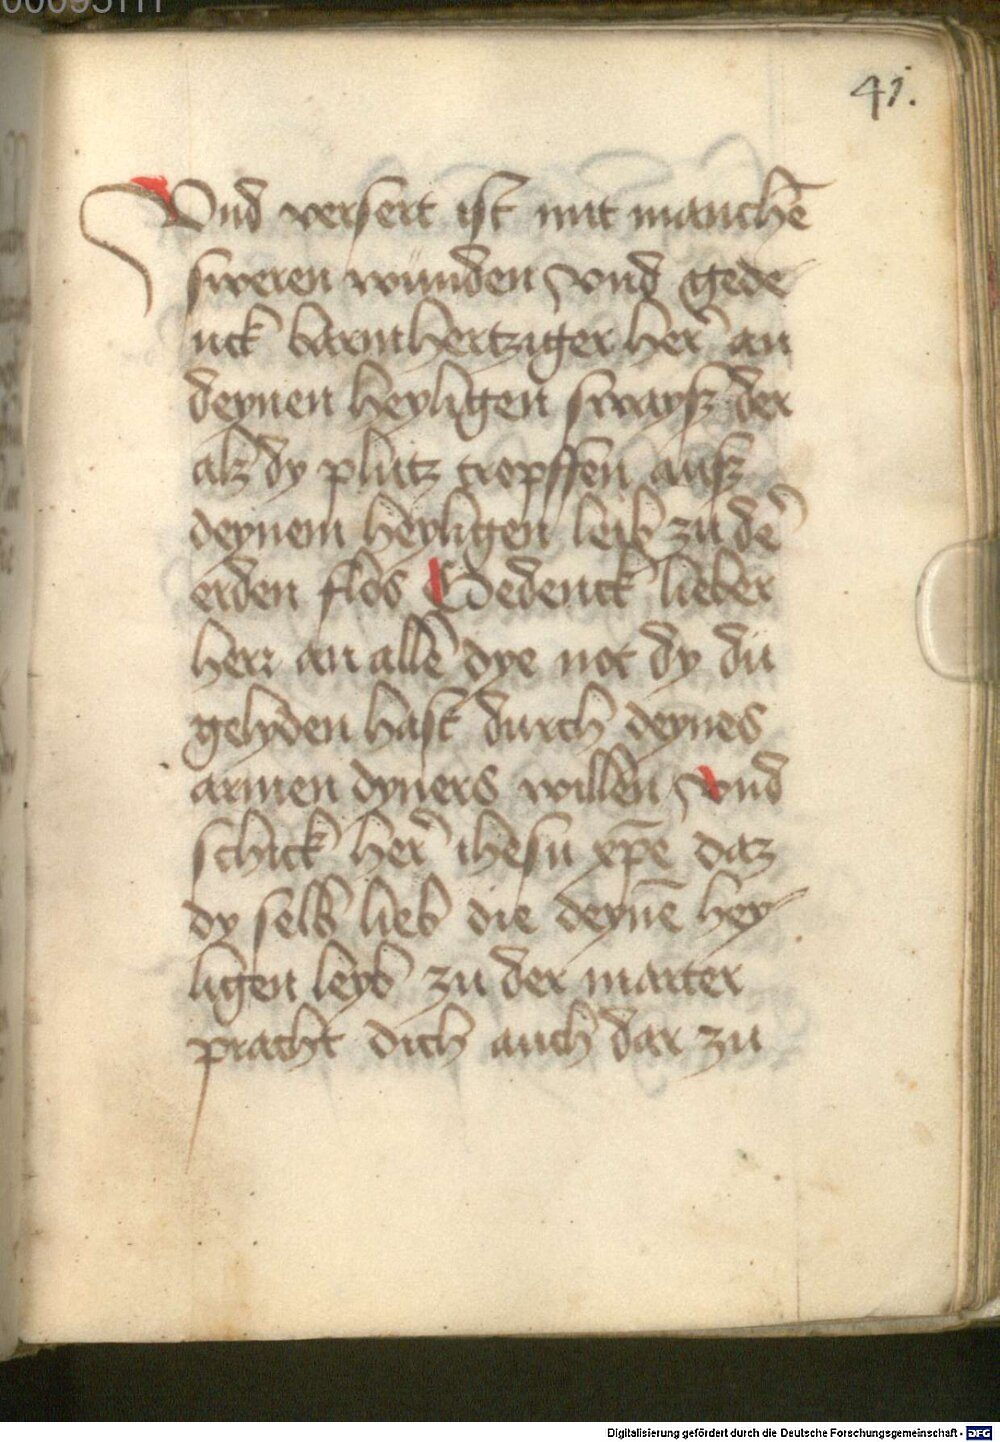 41.
Vnd versert ist mit manchē
sweren wunden vnd gede
nck barmhertziger her̄ an
deynen heyligen swayß der
alz dy plutz tropffen auß
deynem heyligen leib zu de᷑
erden flos Gedenck lieber
herr an allē dye not dy du
gelyden hast durch deynes
armen dyners willen vnd
schick her̄ ihesu xp̄e daz
dy selb lieb die deynē hey-
ligen leyb zu der marter
pracht dich auch dar zu
Digitalisierung gefördert durch die Deutsche Forschungsgemeinschaft - DFG